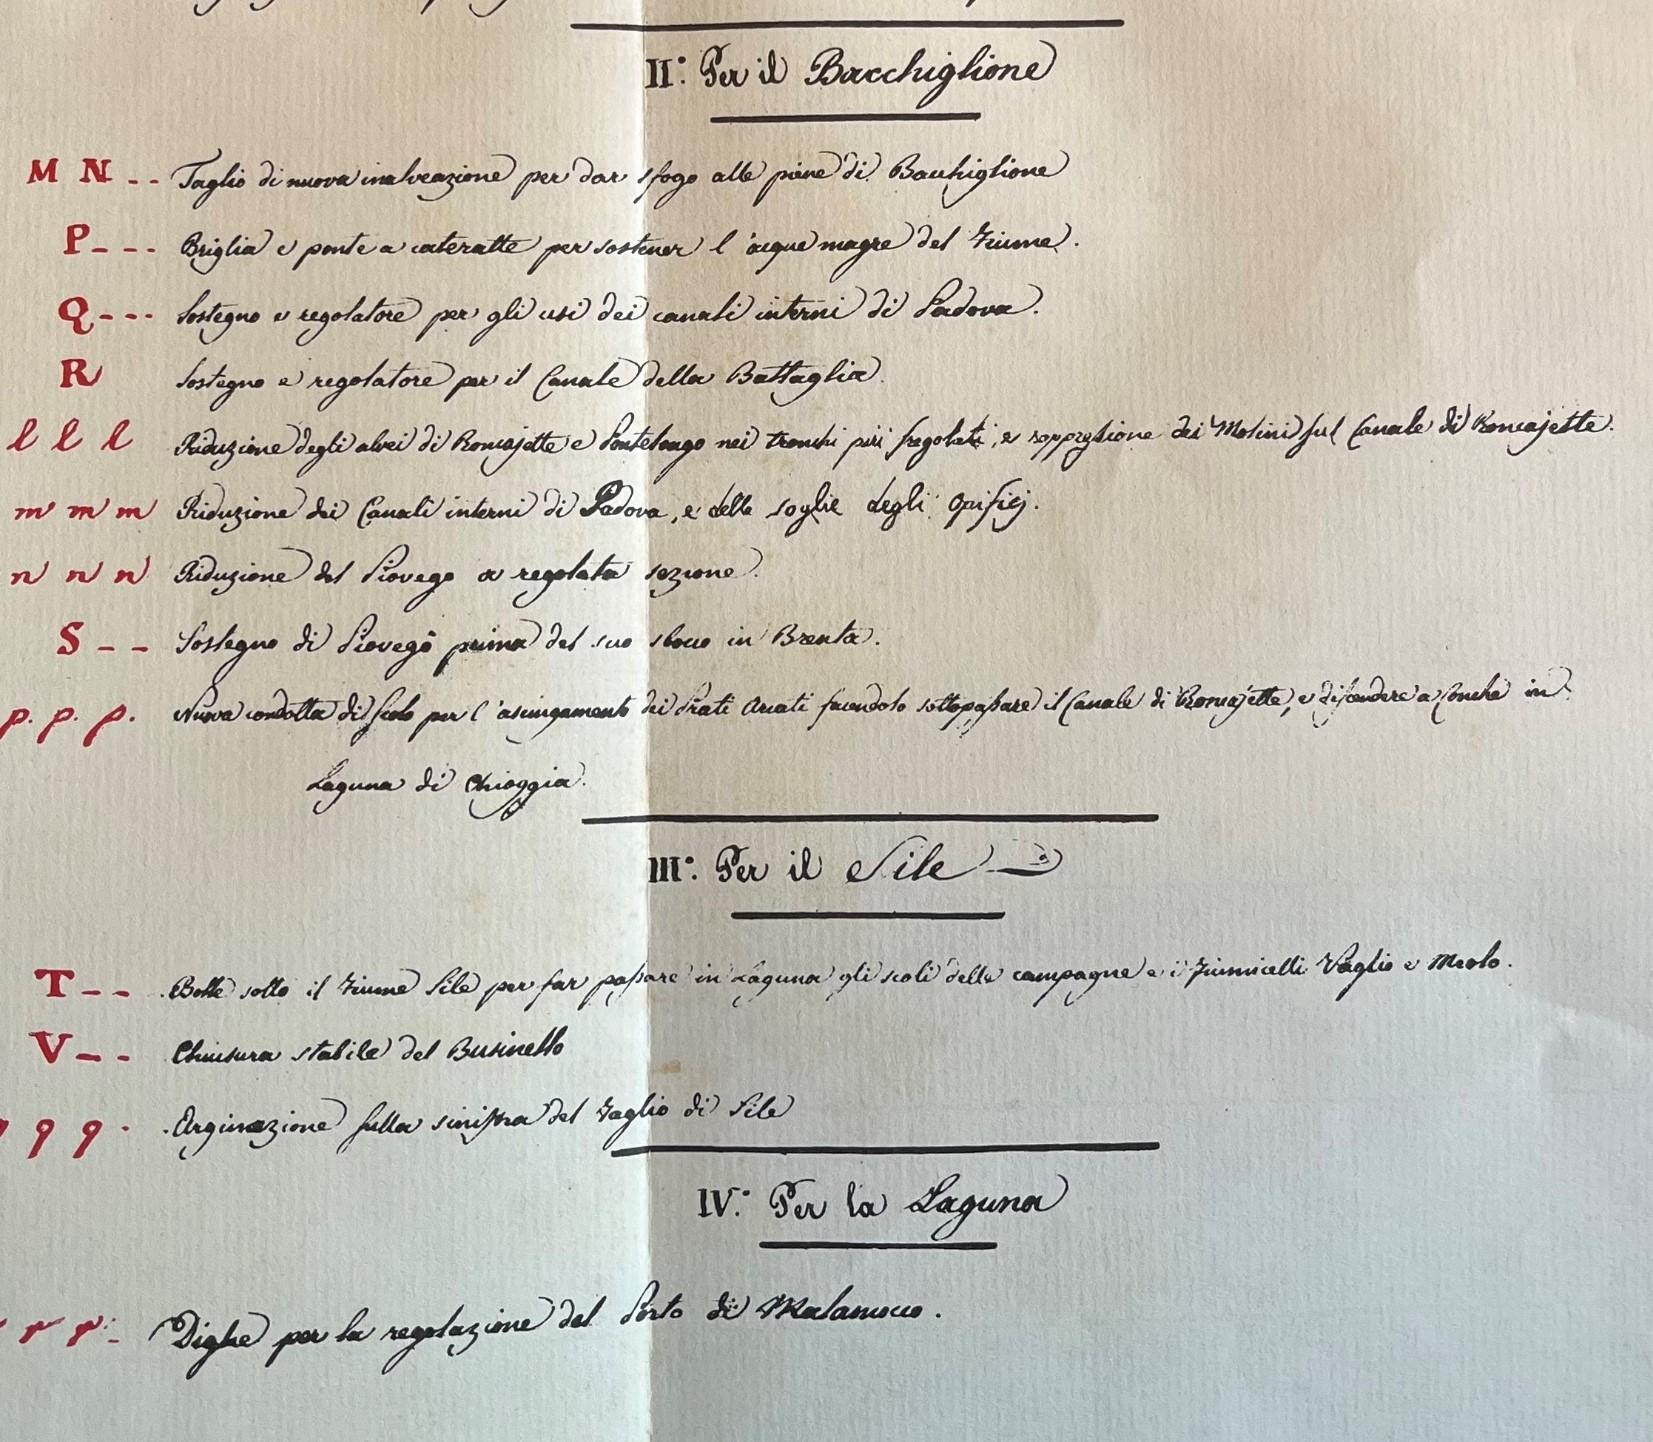 II.° Per il Bacchiglione
M N -- Taglio di nuova inalveazione per dar sfogo alle piene di Bacchiglione
P --- Briglia e ponte a cateratte per sostener l'acque magre del Fiume.
Q --- Sostegno e regolatore per gli usi dei canali interni di Padova.
R Sostegno e regolatore per il Canale della Battaglia.
l l l Riduzione degli alvei di Roncajette e Pontelongo nei tronchi più sregolati, e soppressione dei Molini sul Canale di Roncajette.
m m m Riduzione dei Canali interni di Padova, e delle soglie degli opificj.
n n n Riduzione del Piovego a regolata sezione.
S -- Sostegno di Piovego prima del suo sboco in Brenta.
p. p. p. Nuova condotta di scolo per l'asciugamento dei Prati Arcati facendolo sottopassare il Canale di Roncajette, e discendere a Conche in
Laguna di Chioggia.
III.° Per il Sile
T -- Botte sotto il Fiume Sile per far passare in Laguna gli scoli delle campagne e i Fiumicelli Vaglio e Meolo.
V -- Chiusura stabile del Businello
q q q . Arginazione sulla sinistra del Taglio di Sile
IV.° Per la Laguna
r r r Dighe per la regolazione del Porto di Malamocco.